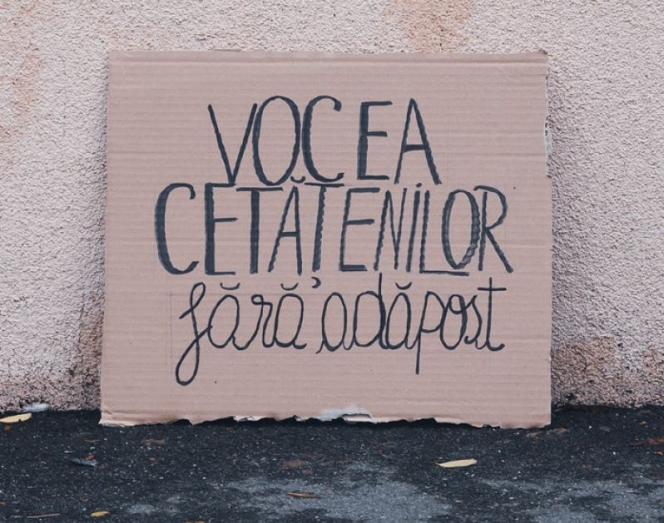 VOCEA
CETĂȚENILOR
fără adăpost